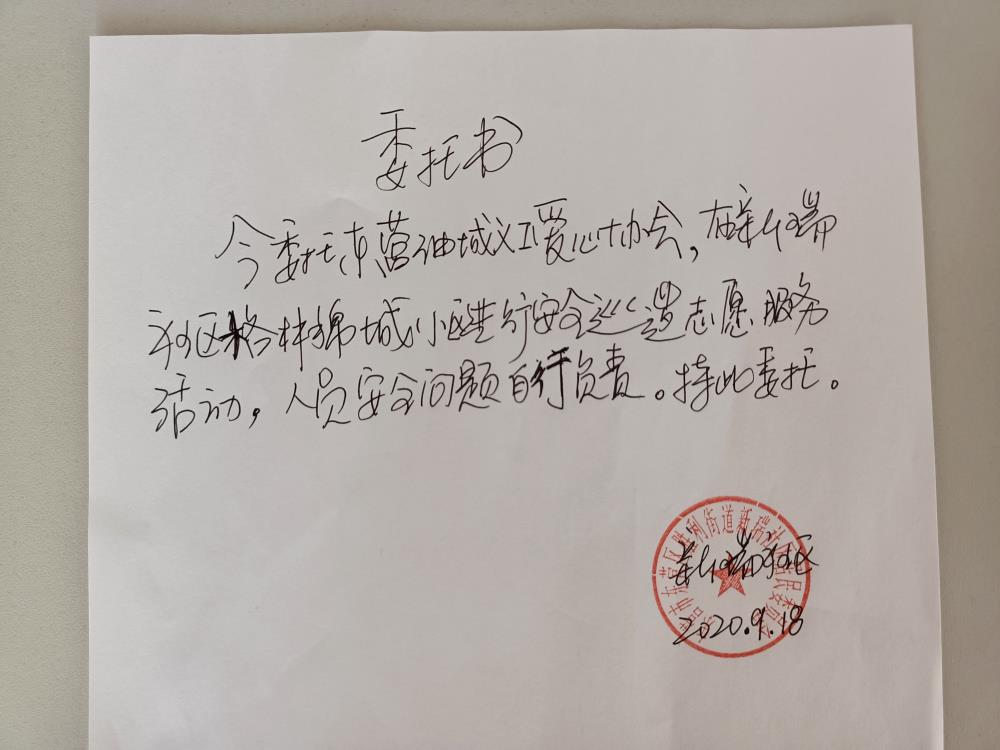 委托书
今委托东营油城义工爱心协会，在新瑞
社区格林绵城小区进行安全巡逻志愿服务
活动，人员安全问题自行负责。特此委托。
东营市东营区胜利街道新瑞社区居民委员会
新瑞社区
2020.9.18